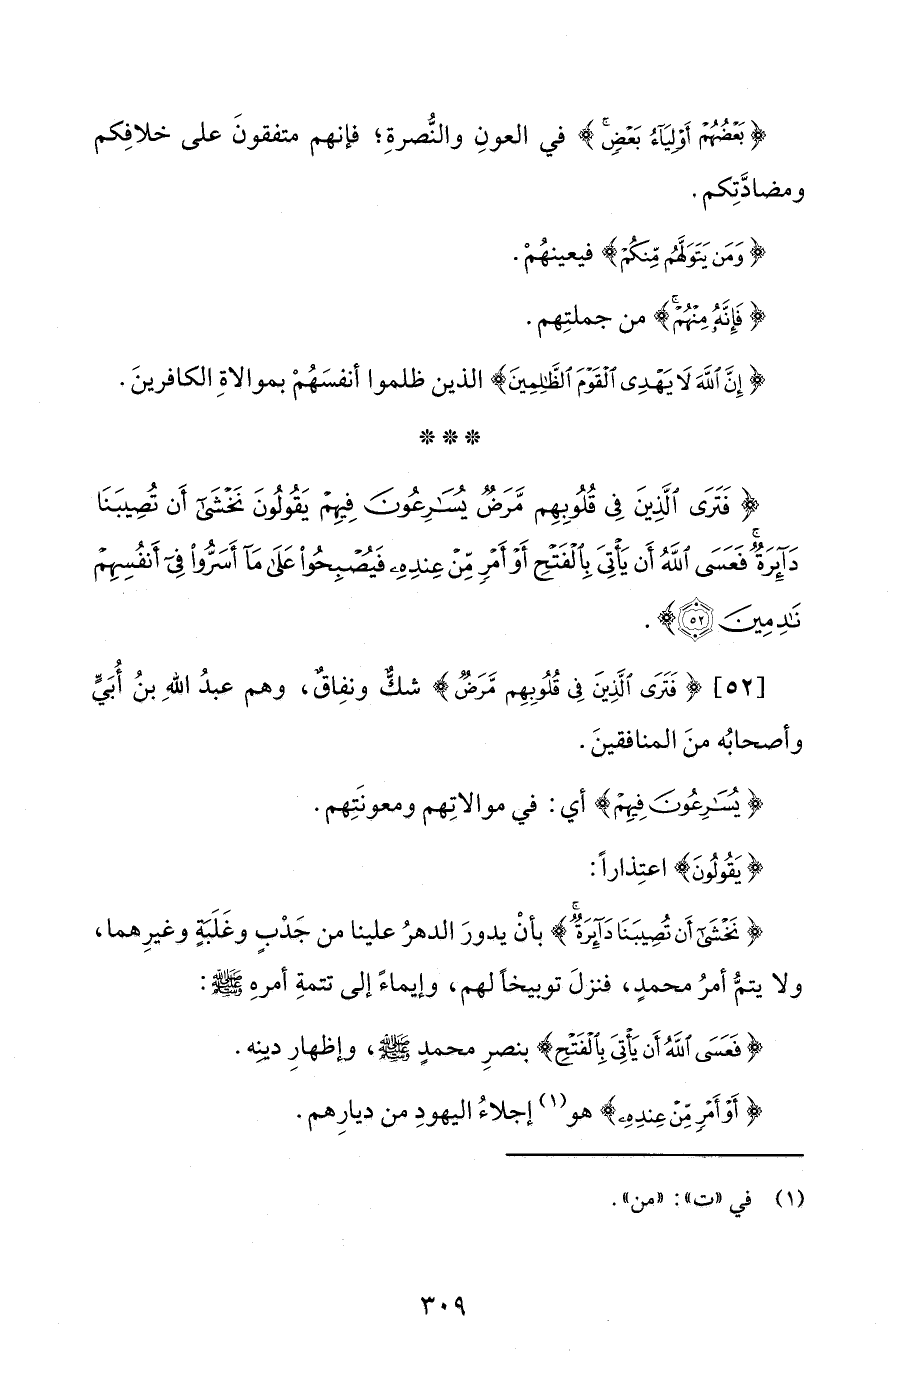 ﴿ بَعْضُهُمْ أَوْلِيَآءُ بَعْضٍ ۚ ﴾ في العونِ والنُّصرةِ؛ فإنهم متفقونَ على خلافِكم
ومضادَّتِكم.
﴿ وَمَن يَتَوَلَّهُم مِّنكُمْ ﴾ فيعينهُمْ.
﴿ فَإِنَّهُۥ مِنْهُمْ ۗ ﴾ من جملتِهم.
﴿ إِنَّ ٱللَّهَ لَا يَهْدِى ٱلْقَوْمَ ٱلظَّٰلِمِينَ ﴾ الذين ظلموا أنفسَهُمْ بموالاةِ الكافرينَ.
* * *
﴿ فَتَرَى ٱلَّذِينَ فِى قُلُوبِهِم مَّرَضٌ يُسَٰرِعُونَ فِيهِمْ يَقُولُونَ نَخْشَىٰٓ أَن تُصِيبَنَا
دَآئِرَةٌ ۚ فَعَسَى ٱللَّهُ أَن يَأْتِىَ بِٱلْفَتْحِ أَوْ أَمْرٍ مِّنْ عِندِهِۦ فَيُصْبِحُوا۟ عَلَىٰ مَآ أَسَرُّوا۟ فِىٓ أَنفُسِهِمْ
نَٰدِمِينَ ۝٥٢ ﴾.
[٥٢] ﴿ فَتَرَى ٱلَّذِينَ فِى قُلُوبِهِم مَّرَضٌ ﴾ شكٌّ ونفاقٌ، وهم عبدُ اللهِ بنُ أُبَيٍّ
وأصحابُه منَ المنافقينَ.
﴿ يُسَٰرِعُونَ فِيهِمْ ﴾ أي: في موالاتِهم ومعونَتِهم.
﴿ يَقُولُونَ ﴾ اعتِذاراً:
﴿ نَخْشَىٰٓ أَن تُصِيبَنَا دَآئِرَةٌ ۚ ﴾ بأنْ يدورَ الدهرُ علينا من جَدْبٍ وغَلَبَةٍ وغيرِهما،
ولا يتمُّ أمرُ محمدٍ، فنزلَ توبيخاً لهم، وإيماءً إلى تتمةِ أمرهِ ﷺ:
﴿ فَعَسَى ٱللَّهُ أَن يَأْتِىَ بِٱلْفَتْحِ ﴾ بنصرِ محمدٍ ﷺ، وإظهارِ دينِه.
﴿ أَوْ أَمْرٍ مِّنْ عِندِهِۦ ﴾ هو(١) إجلاءُ اليهودِ من ديارِهم.
(١) في «ت»: «من».
٣٠٩